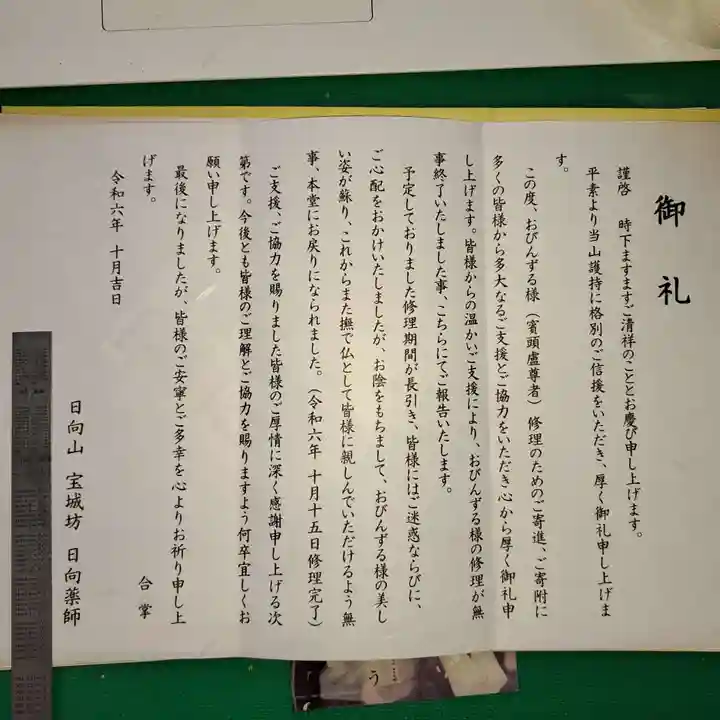 御礼
謹啓　時下ますますご清祥のこととお慶び申し上げます。
平素より当山護持に格別のご信援をいただき、厚く御礼申し上げま
す。
この度、おびんずる様（賓頭盧尊者）修理のためのご寄進、ご寄附に
多くの皆様から多大なるご支援とご協力をいただき心から厚く御礼申
し上げます。皆様からの温かいご支援により、おびんずる様の修理が無
事終了いたしました事、こちらにてご報告いたします。
予定しておりました修理期間が長引き、皆様にはご迷惑ならびに、
ご心配をおかけいたしましたが、お陰をもちまして、おびんずる様の美し
い姿が蘇り、これからまた撫で仏として皆様に親しんでいただけるよう無
事、本堂にお戻りになられました。（令和六年 十月十五日修理完了）
ご支援、ご協力を賜りました皆様のご厚情に深く感謝申し上げる次
第です。今後とも皆様のご理解とご協力を賜りますよう何卒宜しくお
願い申し上げます。
最後になりましたが、皆様のご安寧とご多幸を心よりお祈り申し上
げます。
合掌
令和六年 十月吉日
日向山 宝城坊 日向薬師
う